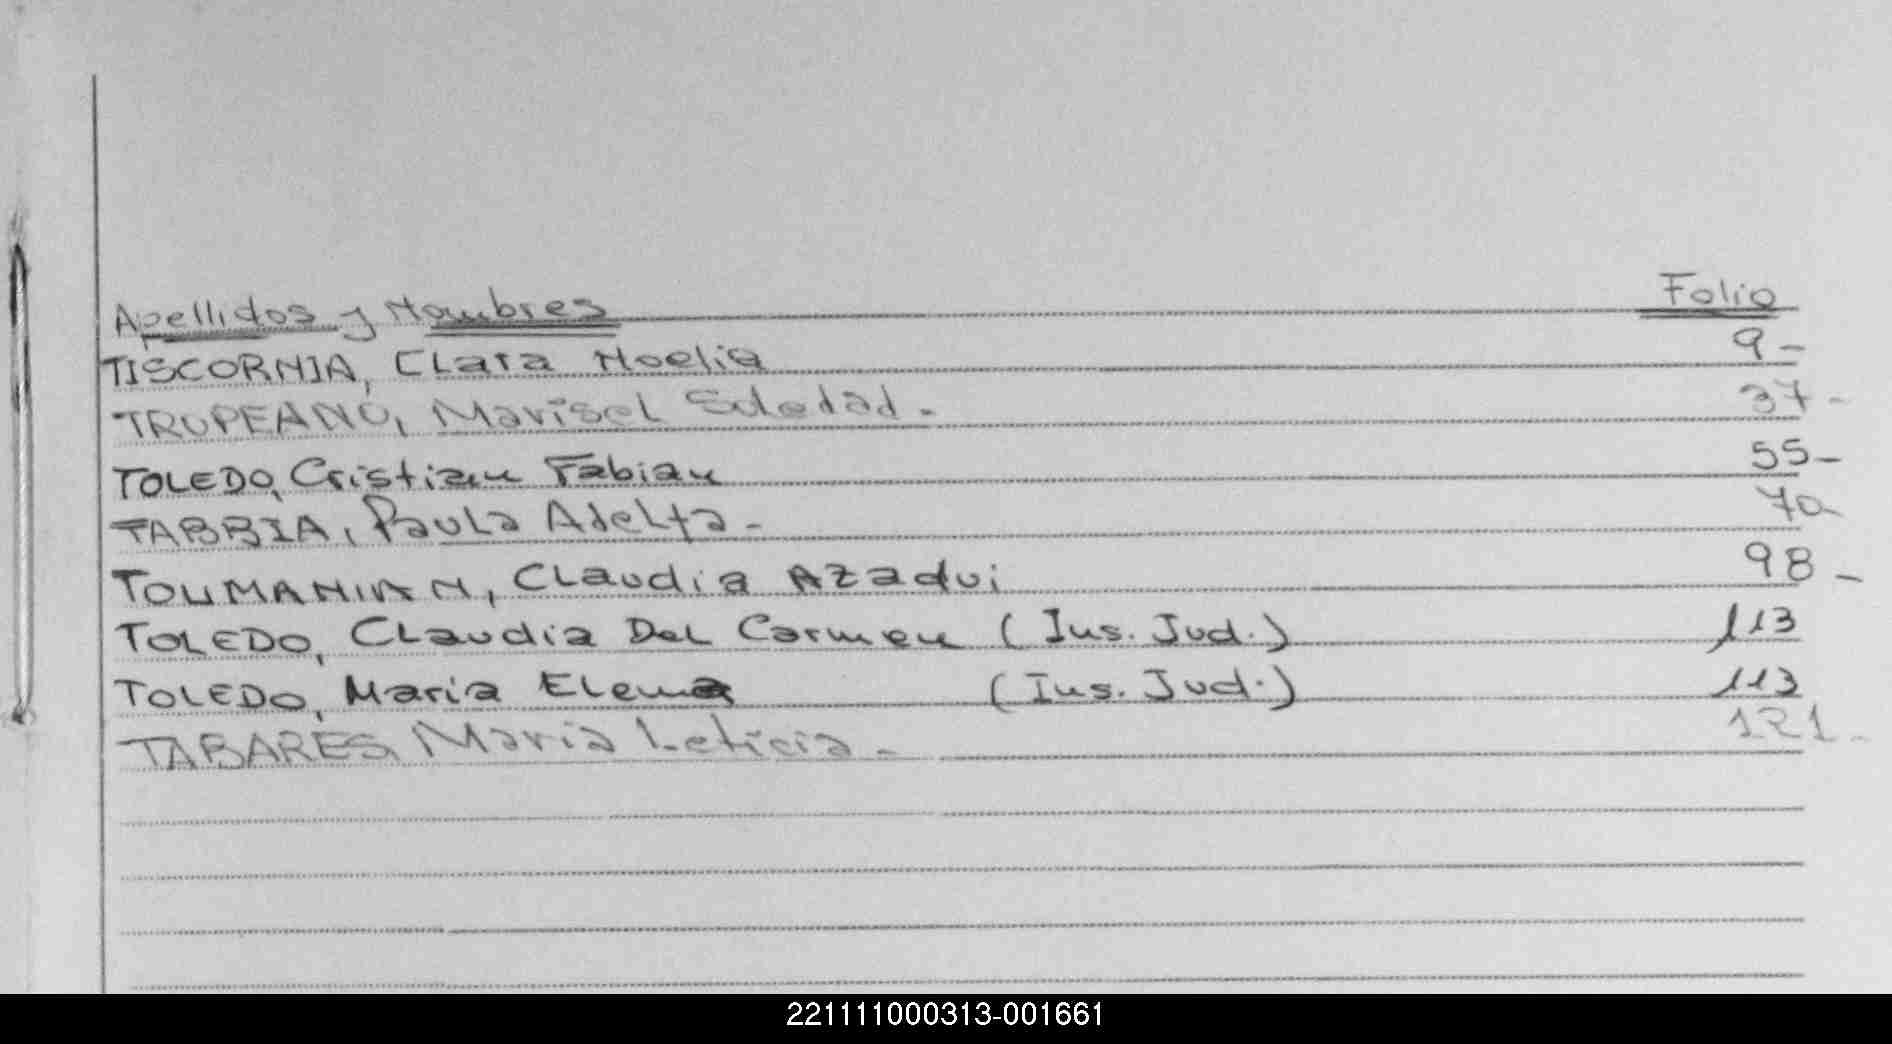 Apellidos y Nombres Folio
TISCORNIA, Clara Noelia 9-
TROPEANO, Marisol Soledad.- 37-
TOLEDO, Cristian Fabian 55-
TABBIA, Paula Adelfa.- 70-
TOUMANIAN, Claudia Azadui 98-
TOLEDO, Claudia Del Carmen (Ins. Jud.) 113
TOLEDO, Maria Elena (Ins. Jud.) 113
TABARES, Maria Leticia.- 121-
221111000313-001661